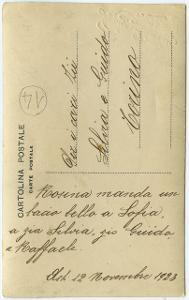 14
CARTOLINA POSTALE
CARTE POSTALE
Per i cari zii
Silvia e Guido
Torino
Rosina manda un
bacio bello a Sofia,
a zia Silvia, zio Guido
e Raffaele.
12 Novembre 1923